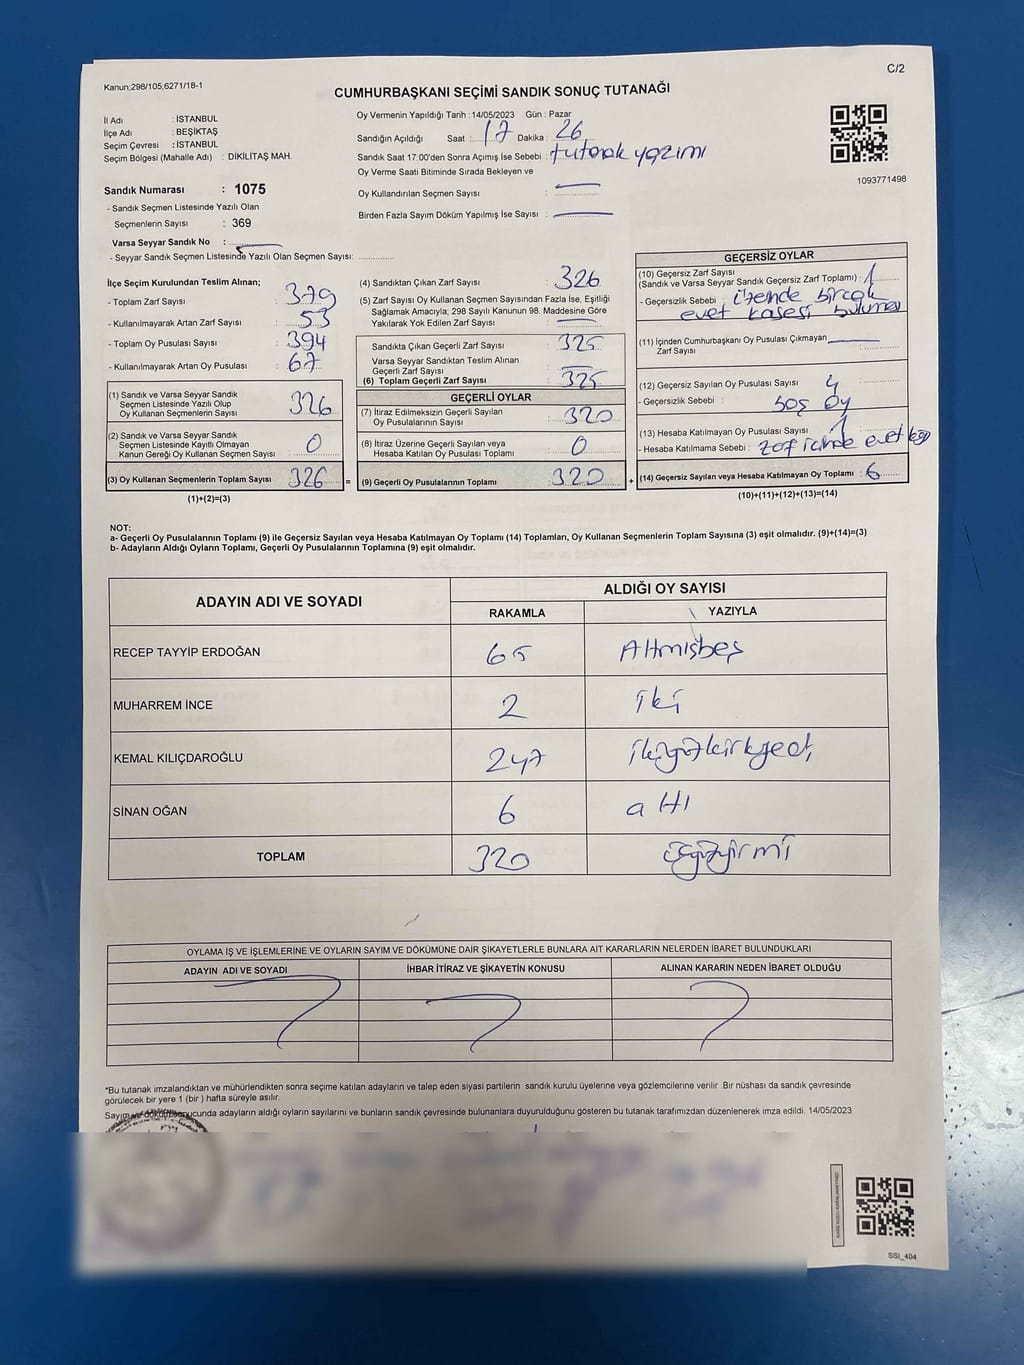 C/2
Kanun;298/105;6271/18-1
CUMHURBAŞKANI SEÇİMİ SANDIK SONUÇ TUTANAĞI
İl Adı : İSTANBUL
İlçe Adı : BEŞİKTAŞ
Seçim Çevresi : İSTANBUL
Seçim Bölgesi (Mahalle Adı) : DİKİLİTAŞ MAH.
Sandık Numarası : 1075
- Sandık Seçmen Listesinde Yazılı Olan
Seçmenlerin Sayısı : 369
Varsa Seyyar Sandık No :
- Seyyar Sandık Seçmen Listesinde Yazılı Olan Seçmen Sayısı:
Oy Vermenin Yapıldığı Tarih :14/05/2023 Gün : Pazar
Sandığın Açıldığı Saat : 17 Dakika : 26
Sandık Saat 17:00'den Sonra Açımış İse Sebebi : tutanak yazımı
Oy Verme Saati Bitiminde Sırada Bekleyen ve
Oy Kullandırılan Seçmen Sayısı : —
Birden Fazla Sayım Döküm Yapılmış İse Sayısı : —
1093771498
İlçe Seçim Kurulundan Teslim Alınan;
- Toplam Zarf Sayısı : 379
- Kullanılmayarak Artan Zarf Sayısı : 53
- Toplam Oy Pusulası Sayısı : 394
- Kullanılmayarak Artan Oy Pusulası : 67
(1) Sandık ve Varsa Seyyar Sandık
Seçmen Listesinde Yazılı Olup
Oy Kullanan Seçmenlerin Sayısı : 326
(2) Sandık ve Varsa Seyyar Sandık
Seçmen Listesinde Kayıtlı Olmayan
Kanun Gereği Oy Kullanan Seçmen Sayısı : 0
(3) Oy Kullanan Seçmenlerin Toplam Sayısı : 326 =
(1)+(2)=(3)
(4) Sandıktan Çıkan Zarf Sayısı : 326
(5) Zarf Sayısı Oy Kullanan Seçmen Sayısından Fazla İse, Eşitliği
Sağlamak Amacıyla; 298 Sayılı Kanunun 98. Maddesine Göre
Yakılarak Yok Edilen Zarf Sayısı : —
Sandıkta Çıkan Geçerli Zarf Sayısı : 325
Varsa Seyyar Sandıktan Teslim Alınan
Geçerli Zarf Sayısı : —
(6) Toplam Geçerli Zarf Sayısı : 325
GEÇERLİ OYLAR
(7) İtiraz Edilmeksizin Geçerli Sayılan
Oy Pusulalarının Sayısı : 320
(8) İtiraz Üzerine Geçerli Sayılan veya
Hesaba Katılan Oy Pusulası Toplamı : 0
(9) Geçerli Oy Pusulalarının Toplamı : 320 +
GEÇERSİZ OYLAR
(10) Geçersiz Zarf Sayısı
(Sandık ve Varsa Seyyar Sandık Geçersiz Zarf Toplamı) : 1
- Geçersizlik Sebebi : üzerinde birçok
evet kaşesi
(11) İçinden Cumhurbaşkanı Oy Pusulası Çıkmayan
Zarf Sayısı : —
(12) Geçersiz Sayılan Oy Pusulası Sayısı : 4
- Geçersizlik Sebebi : boş oy
(13) Hesaba Katılmayan Oy Pusulası Sayısı : 1
- Hesaba Katılmama Sebebi : zarf içinde evet
(14) Geçersiz Sayılan veya Hesaba Katılmayan Oy Toplamı : 6
(10)+(11)+(12)+(13)=(14)
NOT:
a- Geçerli Oy Pusulalarının Toplamı (9) ile Geçersiz Sayılan veya Hesaba Katılmayan Oy Toplamı (14) Toplamları, Oy Kullanan Seçmenlerin Toplam Sayısına (3) eşit olmalıdır. (9)+(14)=(3)
b- Adayların Aldığı Oyların Toplamı, Geçerli Oy Pusulalarının Toplamına (9) eşit olmalıdır.
ADAYIN ADI VE SOYADI
ALDIĞI OY SAYISI
RAKAMLA YAZIYLA
RECEP TAYYİP ERDOĞAN 65 Altmışbeş
MUHARREM İNCE 2 iki
KEMAL KILIÇDAROĞLU 247 ikiyüzkırkyedi
SİNAN OĞAN 6 altı
TOPLAM 320 üçyüzyirmi
OYLAMA İŞ VE İŞLEMLERİNE VE OYLARIN SAYIM VE DÖKÜMÜNE DAİR ŞİKAYETLERLE BUNLARA AİT KARARLARIN NELERDEN İBARET BULUNDUKLARI
ADAYIN ADI VE SOYADI İHBAR İTİRAZ VE ŞİKAYETİN KONUSU ALINAN KARARIN NEDEN İBARET OLDUĞU
*Bu tutanak imzalandıktan ve mühürlendikten sonra seçime katılan adayların ve talep eden siyasi partilerin sandık kurulu üyelerine veya gözlemcilerine verilir. Bir nüshası da sandık çevresinde
görülecek bir yere 1 (bir ) hafta süreyle asılır.
Sayım ve dökümü sonucunda adayların aldığı oyların sayılarını ve bunların sandık çevresinde bulunanlara duyurulduğunu gösteren bu tutanak tarafımızdan düzenlenerek imza edildi. 14/05/2023
SSI_404